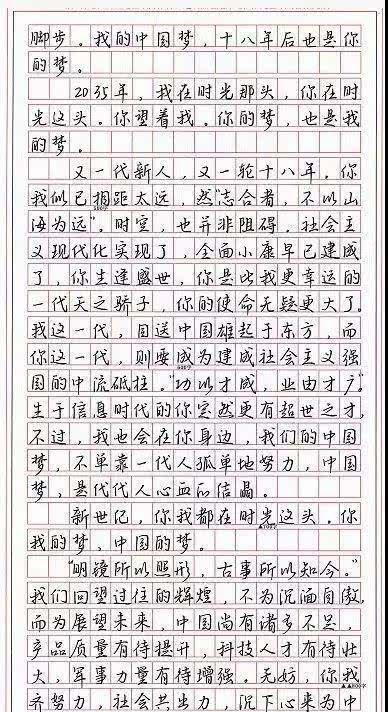 脚步。我的中国梦，十八年后也是你
的梦。
2035年，我在时光那头，你在时
光这头。你望着我。你的梦，也是我
的梦。
又一代新人，又一轮十八年。你
我似已相距太远，然“志合者，不以山
海为远”。时空，也并非阻碍。社会主
义现代化实现了，全面小康早已建成
了，你生逢盛世，你是比我更幸运的
一代天之骄子，你的使命无疑更大了。
我这一代，目送中国雄起于东方，而
你这一代，则要成为建成社会主义强
国的中流砥柱。“功以才成，业由才广。”
生于信息时代的你定然更有超世之才，
不过，我也会在你身边，我们的中国
梦，不单靠一代人孤单地努力，中国
梦，是代代人心血的结晶。
新世纪，你我都在时光这头。你
我的梦，中国的梦。
“明镜所以照形，古事所以知今。”
我们回望过往的辉煌，不为沉湎自傲，
而为展望未来，中国尚有诸多不足，
产品质量有待提升，科技人才有待壮
大，军事力量有待增强。无妨，你我
▲▲800字
齐努力，社会共出力，沉下心来为中